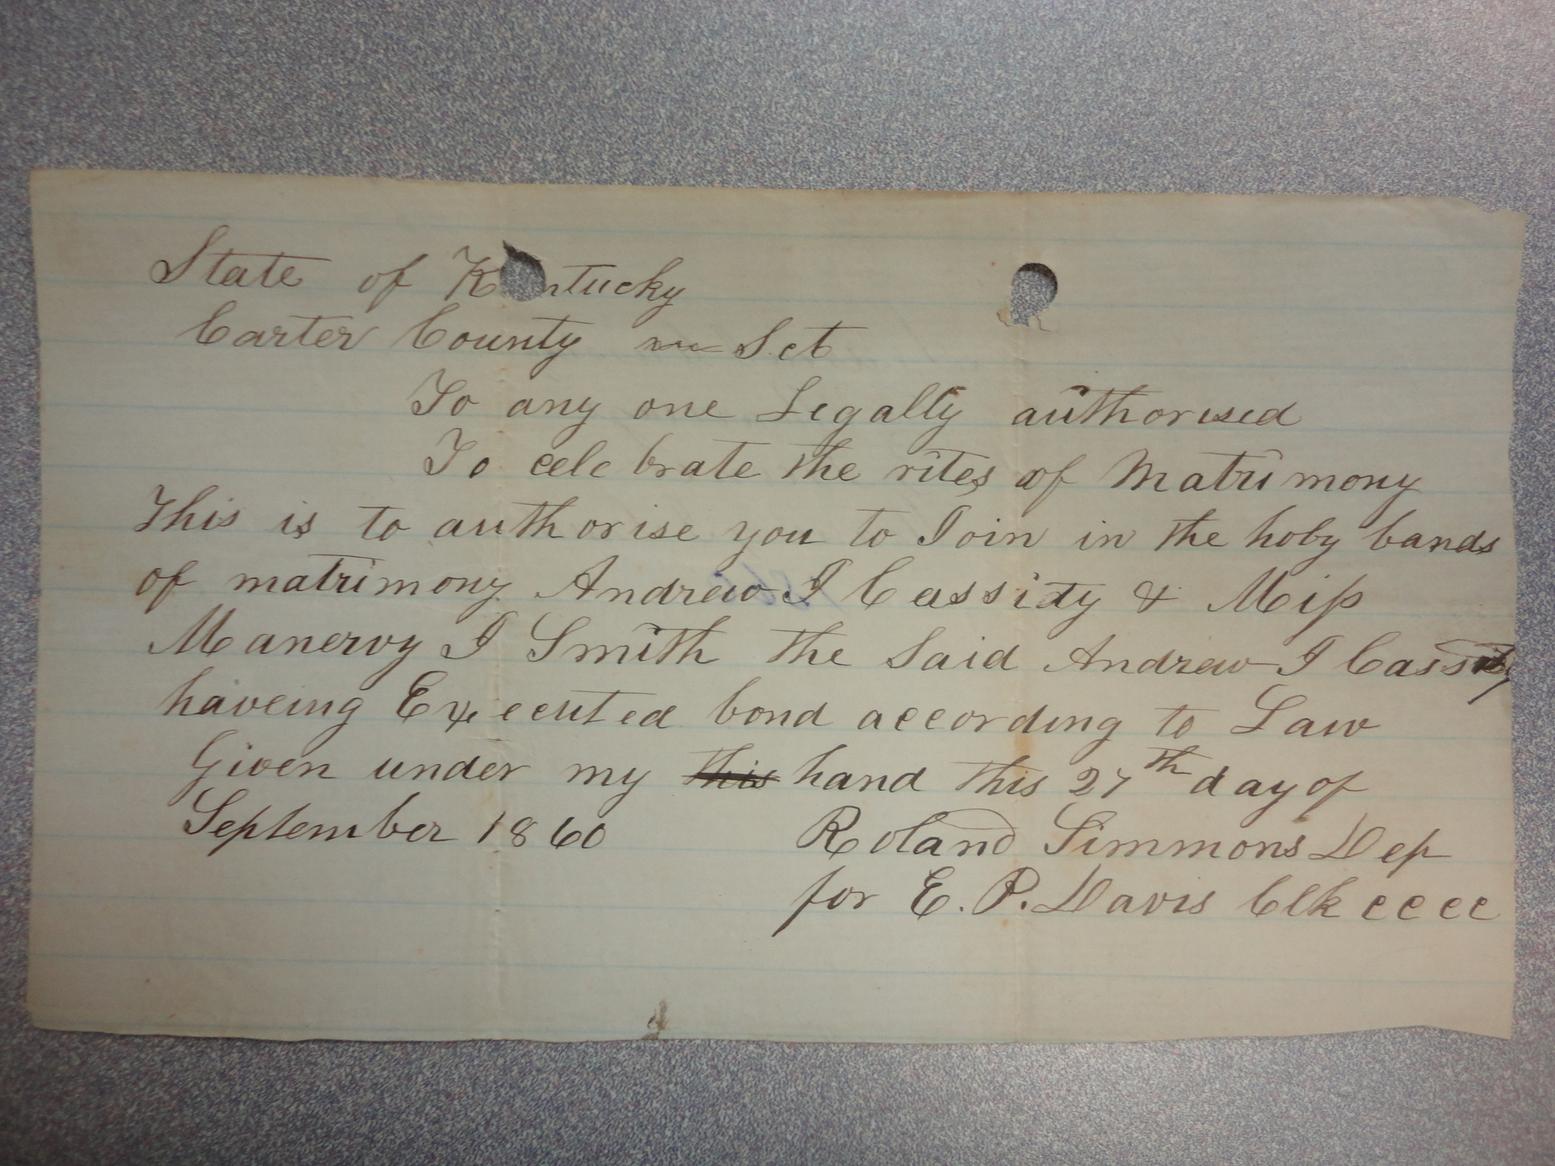 State of K ntucky
Carter County Sct
To any one Legally authorised
To celebrate the rites of Matrimony
This is to authorise you to Join in the holy bands
of matrimony Andrew J Cassidy & Miss
Manervy J Smith the Said Andrew J Cassity
haveing Executed bond according to Law
Given under my this hand this 27th day of
September 1860 Roland Simmons Dep
for E. P. Davis Clk cccc